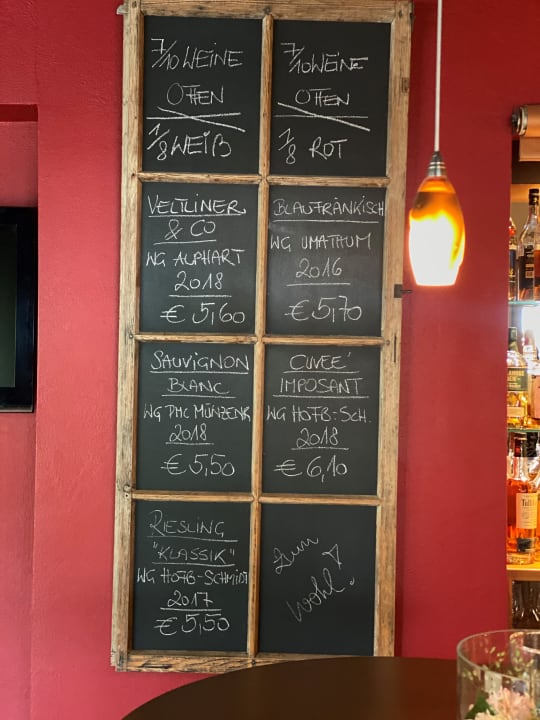 7/10 WEINE
OFFEN
1/8 WEIß
VELTLINER
& CO
WG ALPHART
2018
€ 5,60
SAUVIGNON
BLANC
WG PHC MÜNZENR
2018
€ 5,50
RIESLING
"KLASSIK"
WG HOFB-SCHMIDT
2017
€ 5,50
7/10 WEINE
OFFEN
1/8 ROT
BLAUFRÄNKISCH
WG UMATHUM
2016
€ 5,70
CUVEÉ
IMPOSANT
WG HOFB-SCH.
2018
€ 6,10
Zum
Wohl!